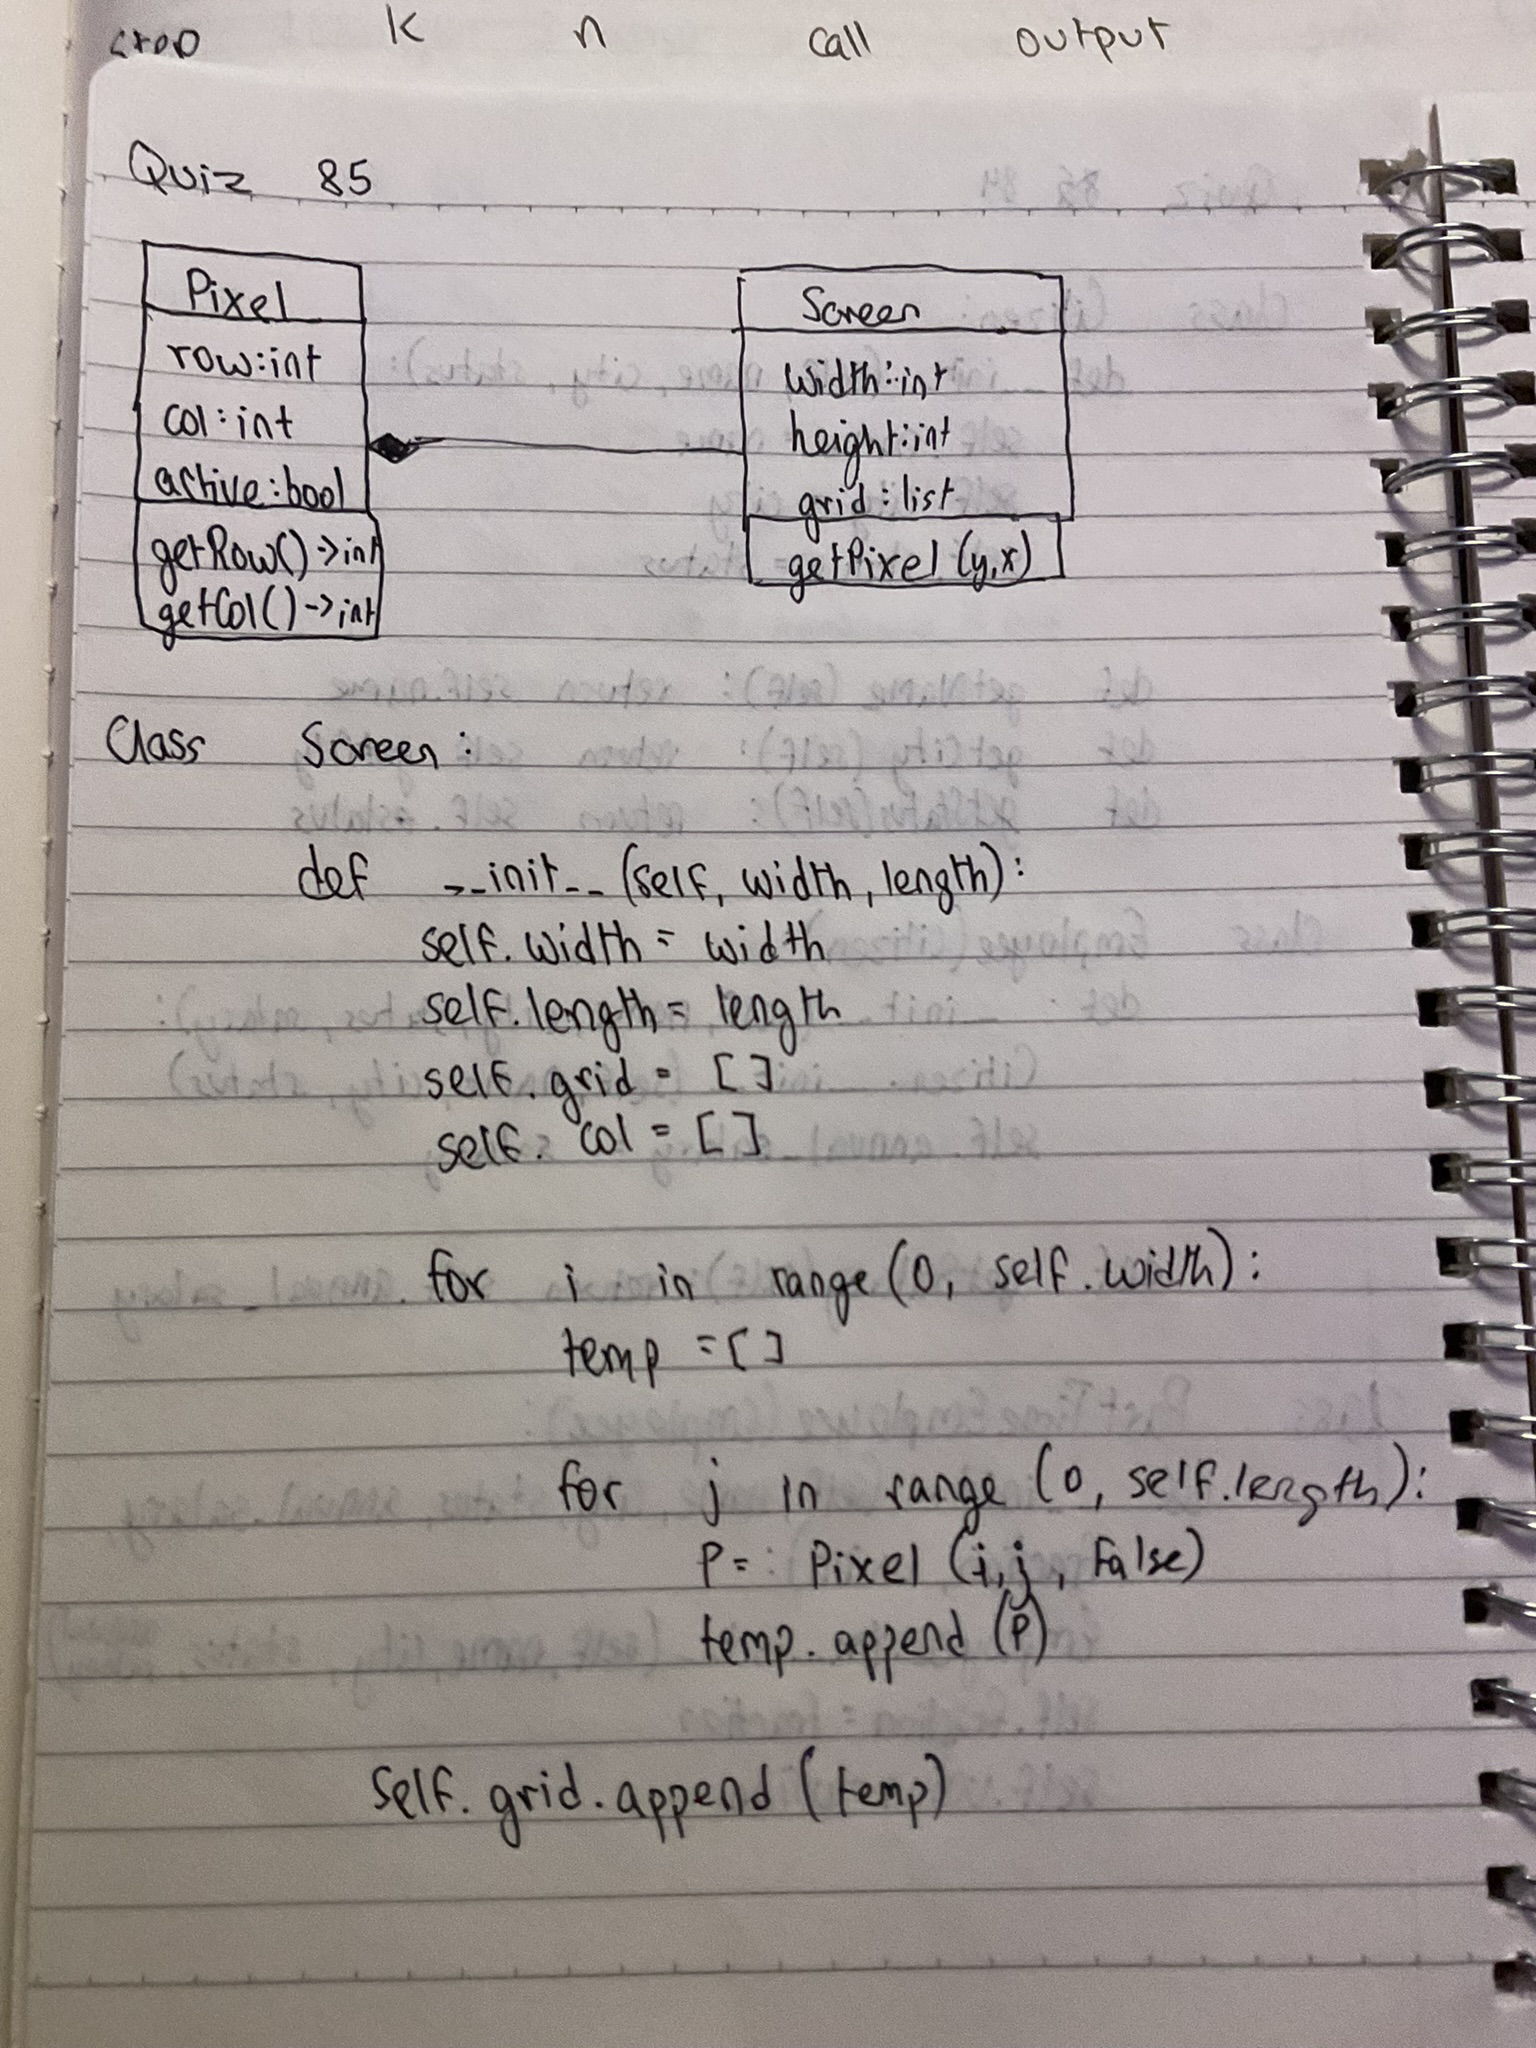 k n call output
Quiz 85
Pixel
row:int
col:int
active:bool
getRow()->int
getCol()->int
Screen
width:int
height:int
grid:list
getPixel (y,x)
Class Screen:
def __init__ (self, width, length):
self.width = width
self.length = length
self.grid = []
self. col = []
for i in range (0, self.width):
temp = []
for j in range (0, self.length):
P = Pixel (i,j, False)
temp.append (P)
self.grid.append (temp)